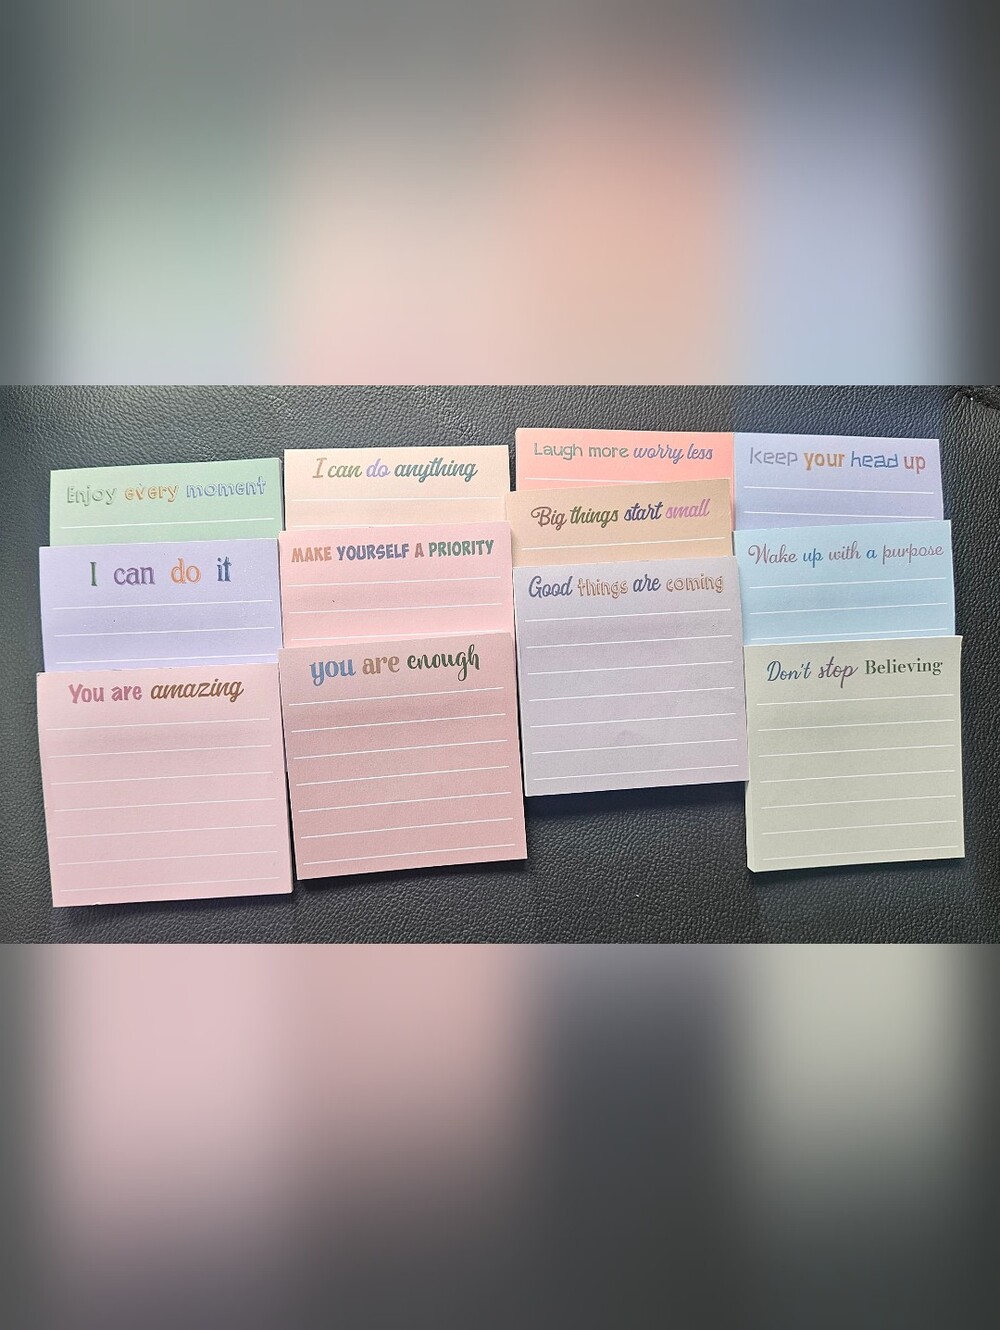 Enjoy every moment
I can do it
You are amazing
I can do anything
MAKE YOURSELF A PRIORITY
you are enough
Laugh more worry less
Big things start small
Good things are coming
keep your head up
Wake up with a purpose
Don't stop Believing